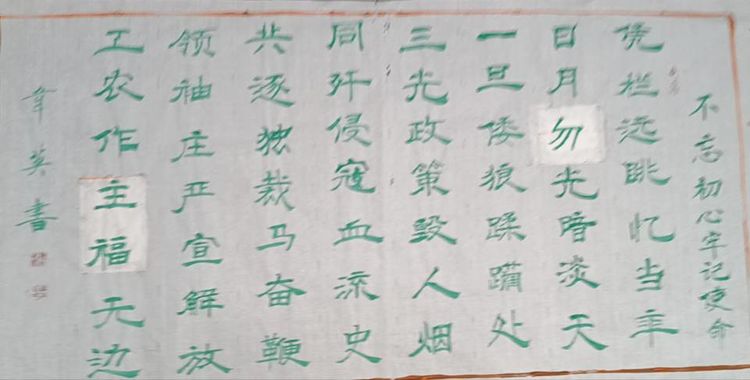 不忘初心牢记使命
凭栏远眺忆当年
日月勿光暗淡天
一旦倭狼蹂躏处
三光政策毁人烟
同歼侵寇血流史
共逐独裁马奋鞭
领袖庄严宣解放
工农作主福无边
韦英书